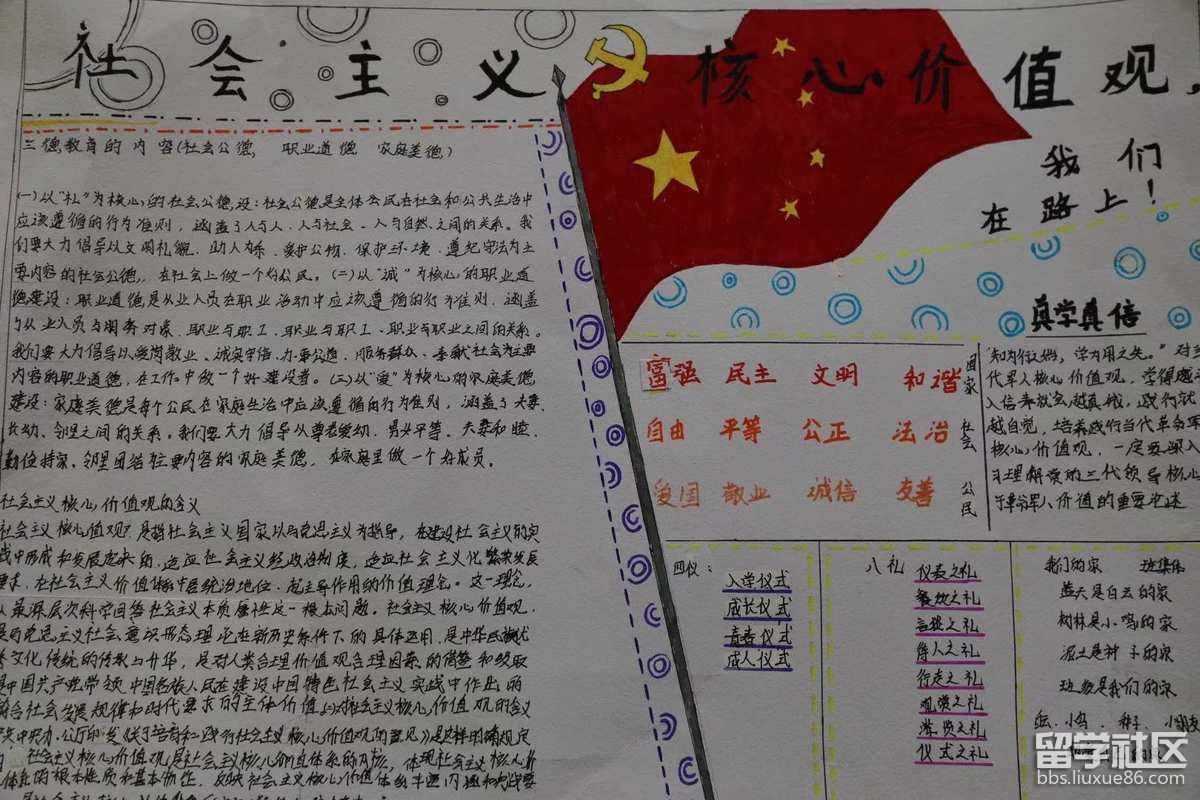 社会主义核心价值观,
我们
在路上!
三德教育的内容(社会公德, 职业道德 家庭美德)
(一)以“礼”为核心的社会公德,设:社会公德是全体公民在社会和公共生活中
应该遵循的行为准则,涵盖了人与人、人与社会、人与自然之间的关系。我
们要大力倡导以文明礼貌、助人为乐、爱护公物、保护环境、遵纪守法为主
要内容的社会公德,在社会上做一个好公民。(二)以“诚”为核心的职业道
德建设:职业道德是从业人员在职业活动中应该遵循的行为准则,涵盖
了从业人员与服务对象、职业与职工、职业与职工、职业与职业之间的关系。
我们要大力倡导以爱岗敬业、诚实守信、办事公道、服务群众、奉献社会为主要
内容的职业道德,在工作中做一个好建设者。(三)以“爱”为核心的家庭美德
建设:家庭美德是每个公民在家庭生活中应该遵循的行为准则,涵盖了夫妻、
长幼、邻里之间的关系。我们要大力倡导以尊老爱幼、男女平等、夫妻和睦、
勤俭持家、邻里团结为主要内容的家庭美德,在家庭里做一个好成员。
社会主义核心价值观的含义
社会主义核心价值观是指社会主义国家以马克思主义为指导,在建设社会主义的实
践中形成和发展起来的,适应社会主义经济政治制度,适应社会主义文化繁荣发展
要求,在社会主义价值体系中居统治地位、起主导作用的价值理念。这一理念,
从最深层次科学回答社会主义本质属性这一根本问题。社会主义核心价值观,
是马克思主义社会意识形态理论在新历史条件下的具体运用,是中华民族优
秀文化传统的传承与升华,是对人类合理价值观合理因素的借鉴和吸取
是中国共产党带领中国各族人民在建设中国特色社会主义实践中作出的
符合社会发展规律和时代要求的主体价值
社会主义核心价值观是社会主义核心价值体系的内核,体现社会主义核心价
值体系的根本性质和基本特征,反映社会主义核心价值体系的丰富内涵和实践要
真学真信
富强 民主 文明 和谐
国家
自由 平等 公正 法治
社会
爱国 敬业 诚信 友善
公民
代军人核心价值观,学得越
入信来就会越真诚,践行就
越自觉,培养践行当代革命军
核心价值观,一定要深入
习理解党的三代领导核心
于革命军人价值的重要论述
四仪:
入学仪式
成长仪式
青春仪式
成人仪式
八礼
仪表之礼
餐饮之礼
言谈之礼
待人之礼
行走之礼
观赏之礼
游览之礼
仪式之礼
我们的家 班集体
蓝天是白云的家
树林是小鸟的家
泥土是种子的家
班级是我们的家
留学社区
bbs.liuxue86.com